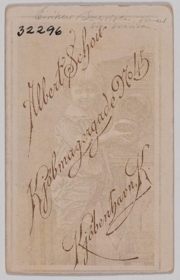 32296
Albert Schou
Kjöbmagergade No 15
Kjöbenhavn, K.